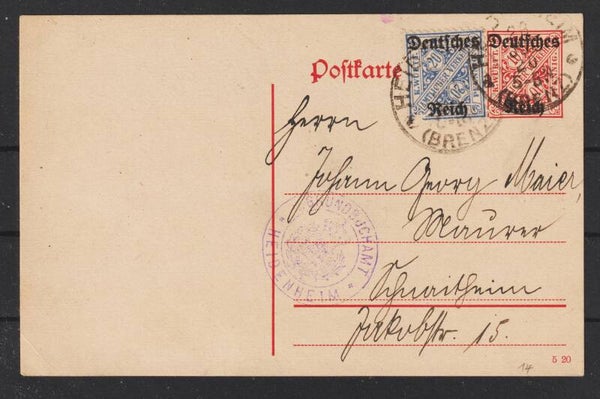 Postkarte
Deutsches
20
Reich
Deutsches
Reich
(BRENZ)
Herrn
Johann Georg Maier,
Maurer
Schnaitheim
Jakobstr. 15.
GRUNDBUCHAMT
* HEIDENHEIM *
5 20
14